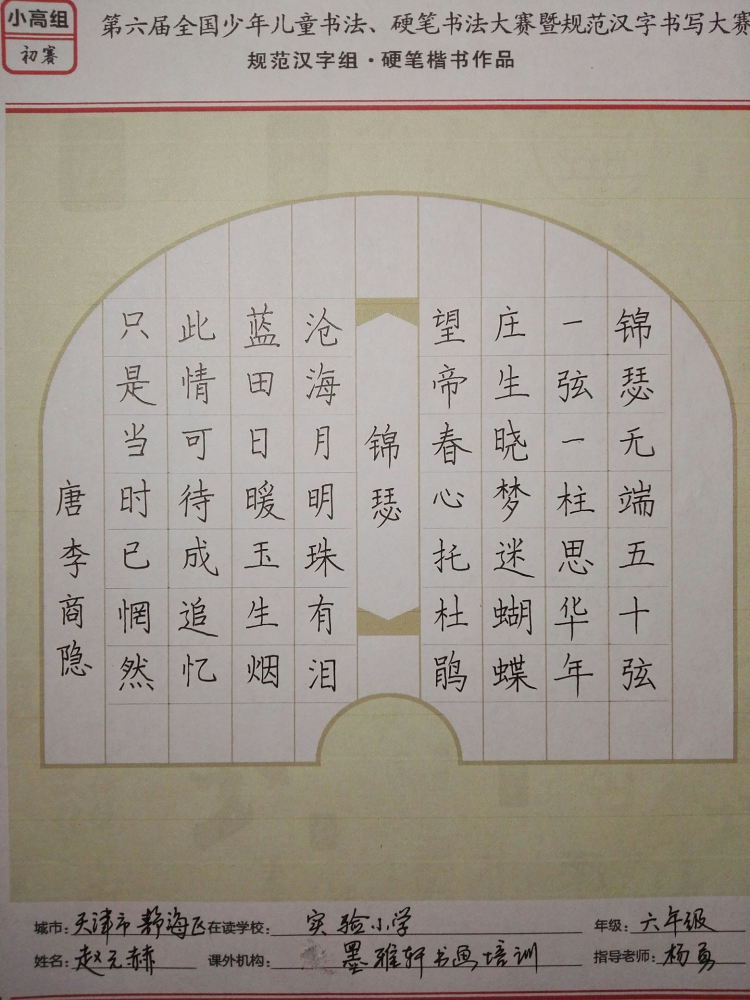 小高组
初赛
第六届全国少年儿童书法、硬笔书法大赛暨规范汉字书写大赛
规范汉字组·硬笔楷书作品
锦瑟无端五十弦
一弦一柱思华年
庄生晓梦迷蝴蝶
望帝春心托杜鹃
锦瑟
沧海月明珠有泪
蓝田日暖玉生烟
此情可待成追忆
只是当时已惘然
唐李商隐
城市：天津市静海区 在读学校：实验小学 年级：六年级
姓名：赵元赫 课外机构：墨雅轩书画培训 指导老师：杨勇